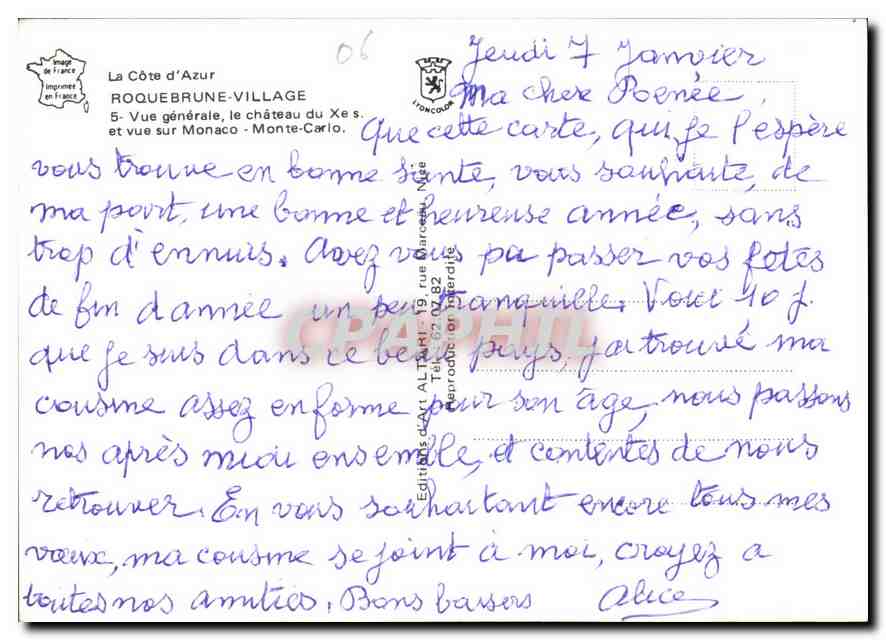 06
Jeudi 7 Janvier
Image
de France
Imprimée
en France
La Côte d'Azur
ROQUEBRUNE-VILLAGE
5- Vue générale, le château du Xe s.
et vue sur Monaco - Monte-Carlo.
LYONCOLOR
Ma chere Renée,
Que cette carte, qui je l'espère
vous trouve en bonne sante, vous souhaite, de
ma part, une bonne et heureuse année, sans
trop d'ennuis. Avez vous pu passer vos fetes
de fin d'année un peu tranquille. Voici 10 j.
que je suis dans ce beau pays, j'ai trouvé ma
cousine assez en forme pour son âge, nous passons
nos après midi ensemble, et contentes de nous
retrouver. En vous souhaitant encore tous mes
vœux, ma cousine se joint à moi, croyez a
toutes nos amities. Bons baisers Alice
Editions d'Art ALTARI - 19, rue Marceau, Nice
Tél. 62.07.82
Reproduction interdite
CPAPHIL